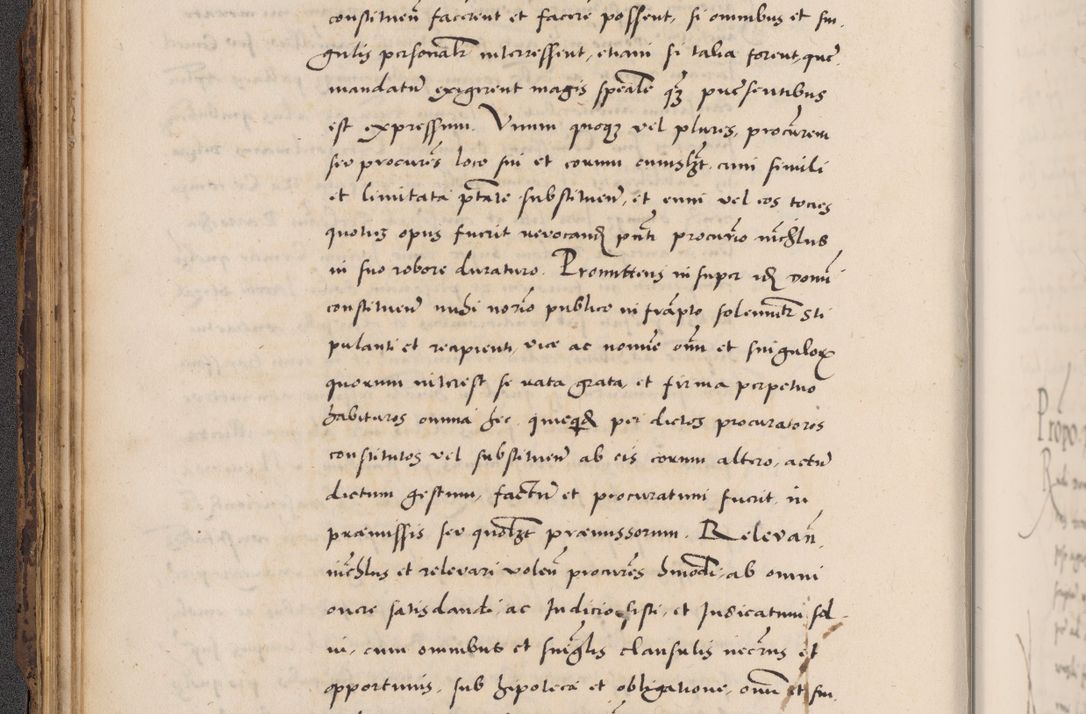 constituen̄ facerent et facere possent, si omnibus et sin-
gulis personalr̄ interressent, etiam si talia forent, que
mandatū exigerent magis spēale q̄ꝫ pn̄ sentibus
est expressum. Vnum quoqꝫ vel plures, procūrem
seu procurēs loco sui et eorum cum simili
et limitata ptāte substituen̄, et eum vel eos tocies
quotiꝫ opus fuerit revocand pn̄ti procurio nichlus
in suo robore duraturo. Promittens in super id domi
constituen̄ michi notrio publico infrāpto solemnitr sti
pulanti et recipienti, vice ac nomine om̄ et singulor
quorum interest se rata grata et firma perpetuo
habituros omnia hec queqd per dictos procuratores
constitutos vel substituen̄ ab eis eorum altero, actū
dictum gestum, factū et procuratum fuerit in
præmissis seu quolꝫt præmissorum. Relevan̄
nichlus et relevari volen̄ procurēs hmodi, ab omni
onere satisdandi, ac Iudicio sisti, et Iudicatum sol-
ui, cum omnibus et singlis clausulis necrijs et
opportunis, sub hipoteca et obligatione, om̄ et sin
Propo